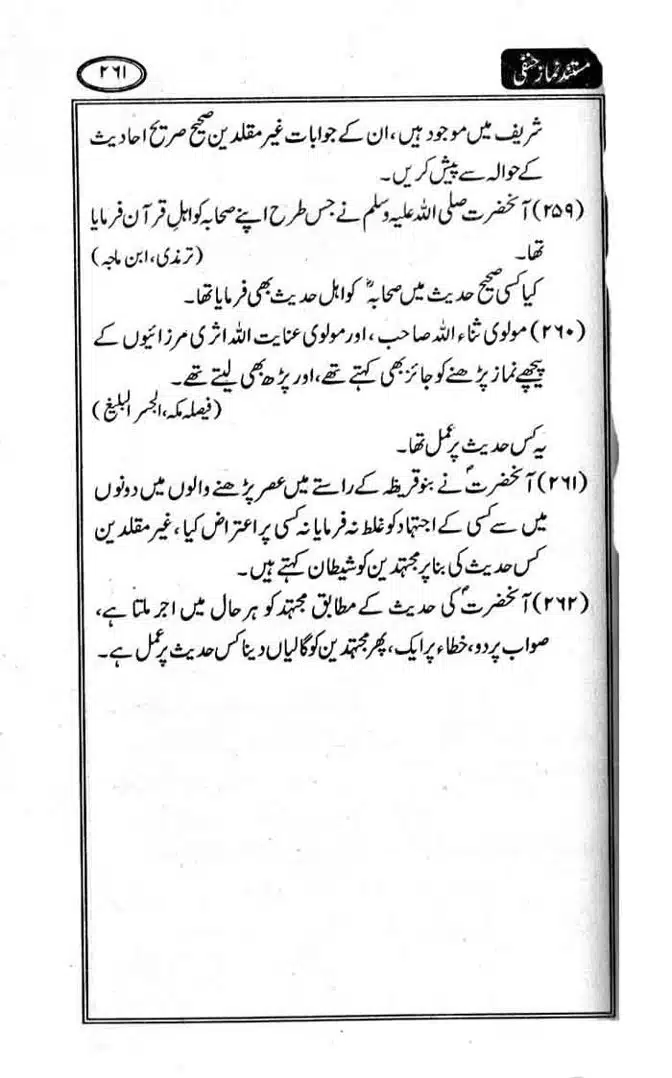 مستند نماز حنفی
۲۶۱
شریف میں موجود ہیں، ان کے جوابات غیر مقلدین صحیح صریح احادیث
کے حوالہ سے پیش کریں۔
(۲۵۹) آنحضرت صلی اللہ علیہ وسلم نے جس طرح اپنے صحابہ کو اہل قرآن فرمایا
تھا۔ (ترمذی، ابن ماجہ)
کیا کسی صحیح حدیث میں صحابہؓ کو اہل حدیث بھی فرمایا تھا۔
(۲۶۰) مولوی ثناء اللہ صاحب، اور مولوی عنایت اللہ اثری مرزائیوں کے
پیچھے نماز پڑھنے کو جائز بھی کہتے تھے، اور پڑھ بھی لیتے تھے۔
(فیصلہ مکہ، الجسر البلیغ)
یہ کس حدیث پر عمل تھا۔
(۲۶۱) آنحضرتؐ نے بنو قریظہ کے راستے میں عصر پڑھنے والوں میں دونوں
میں سے کسی کے اجتہاد کو غلط نہ فرمایا نہ کسی پر اعتراض کیا، غیر مقلدین
کس حدیث کی بنا پر مجتہدین کو شیطان کہتے ہیں۔
(۲۶۲) آنحضرتؐ کی حدیث کے مطابق مجتہد کو ہر حال میں اجر ملتا ہے،
صواب پر دو، خطاء پر ایک، پھر مجتہدین کو گالیاں دینا کس حدیث پر عمل ہے۔